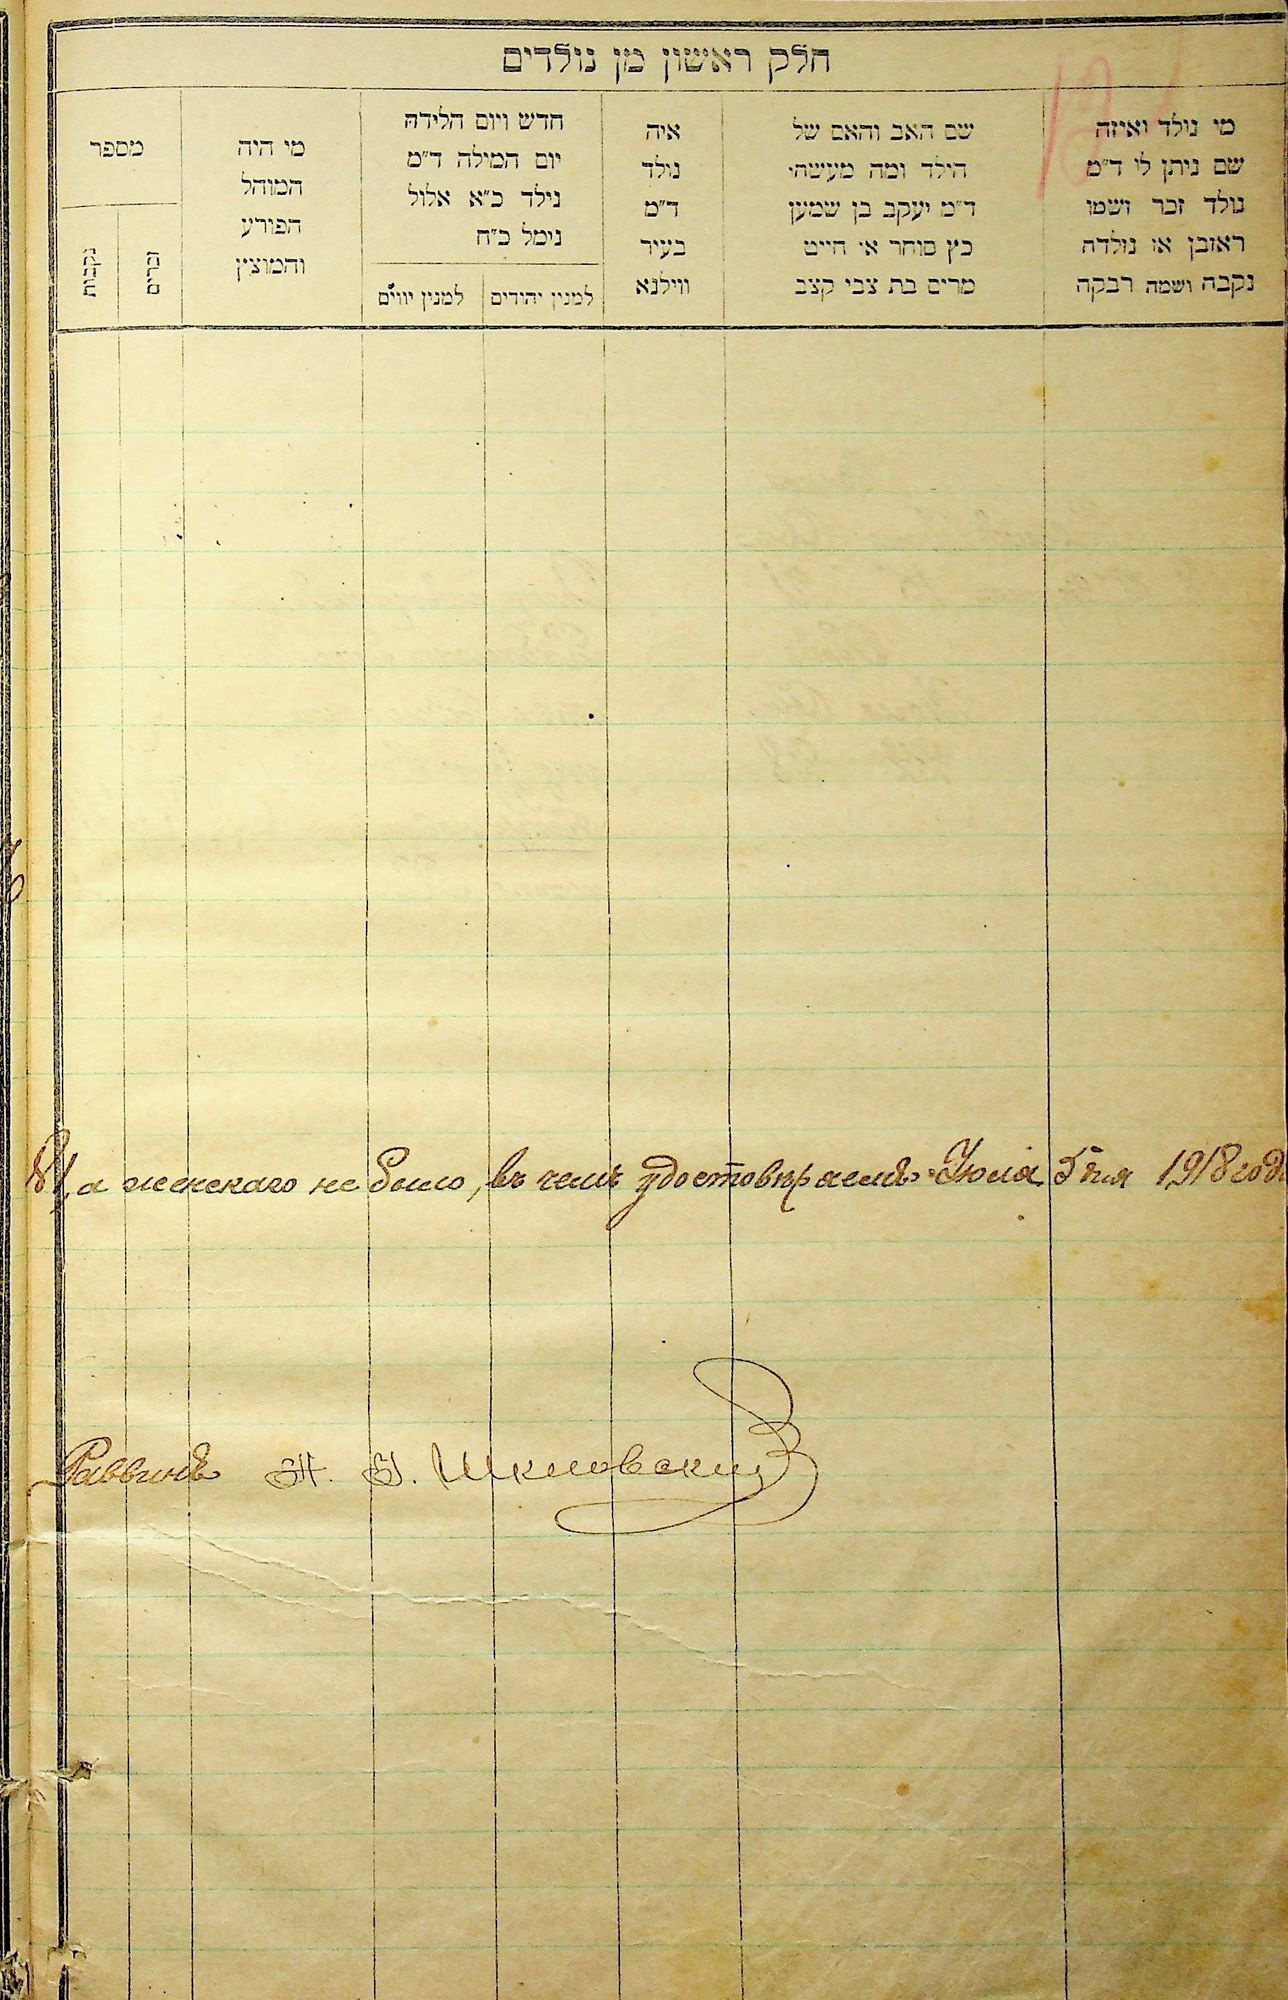 חלק ראשון מן נולדים
מי נולד ואיזה
שם ניתן לו ד"מ
נולד זכר ושמו
ראובן או נולדה
נקבה ושמה רבקה
שם האב והאם של
הילד ומה מעשהו
ד"מ יעקב בן שמעון
כץ סוחר או חייט
מרים בת צבי קצב
איה
נולד
ד"מ
בעיר
ווילנא
חדש ויום הלידה
יום המילה ד"מ
נילד כ"א אלול
נימל כ"ח
למנין יהודים
למנין יווים
מי היה
המוהל
הפורע
והמוצץ
מספר
זכרים
נקבות
а женскаго не было, въ чемъ удостовѣряемъ Іюля 5 дня 1918 год
Раввинъ Шкловский